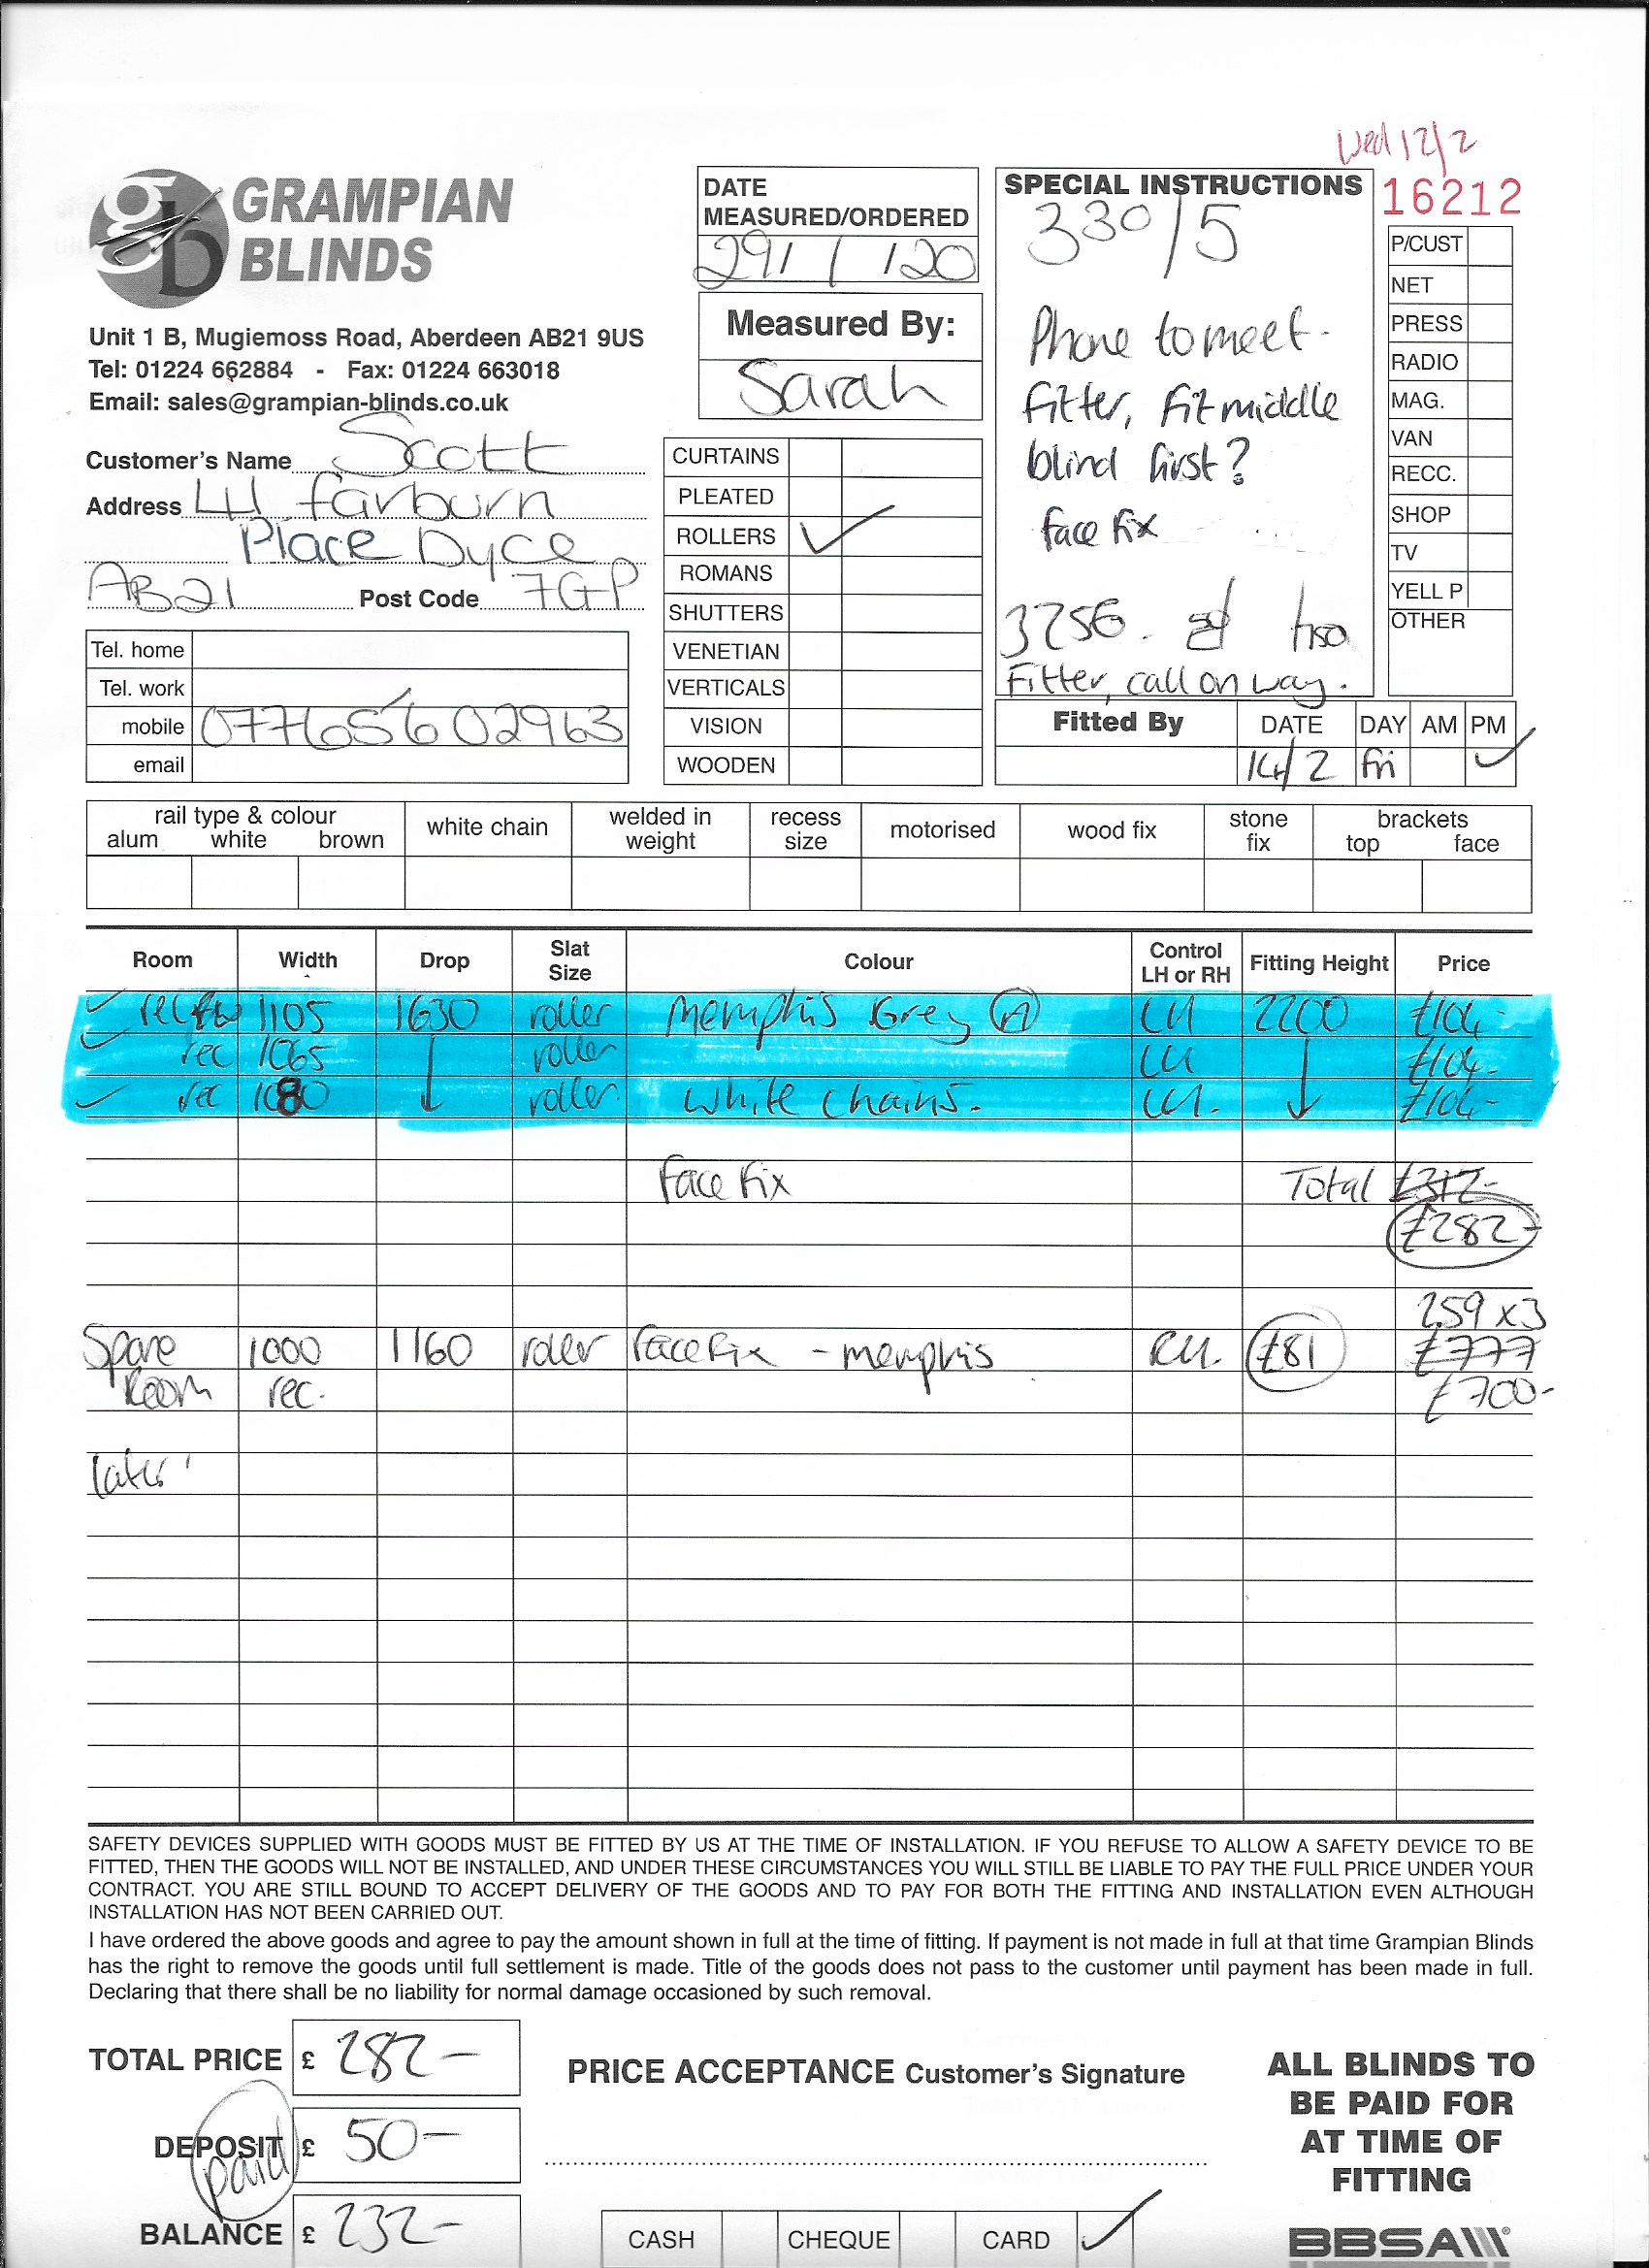 Wed 12/2
GRAMPIAN
BLINDS
Unit 1 B, Mugiemoss Road, Aberdeen AB21 9US
Tel: 01224 662884 - Fax: 01224 663018
Email: sales@grampian-blinds.co.uk
DATE
MEASURED/ORDERED
29/1/20
Measured By:
Sarah
SPECIAL INSTRUCTIONS
330/5
Phone to meet.
fitter, fit middle
blind first?
face fix
3256.
Fitter, call on way.
16212
P/CUST
NET
PRESS
RADIO
MAG.
VAN
RECC.
SHOP
TV
YELL P
OTHER
Customer's Name Scott
Address
Place Dyce
AB21 Post Code 7GP
Tel. home
Tel. work
mobile 07765602963
email
CURTAINS
PLEATED
ROLLERS ✓
ROMANS
SHUTTERS
VENETIAN
VERTICALS
VISION
WOODEN
Fitted By DATE DAY AM PM
14/2 fri ✓
rail type & colour
alum white brown
white chain
welded in
weight
recess
size
motorised
wood fix
stone
fix
brackets
top face
Room Width Drop Slat Size Colour Control LH or RH Fitting Height Price
✓ rec 1105 1630 roller Memphis Grey A LH 2200 £104-
✓ rec 1065 roller LH £104-
✓ rec 1080 roller White Chains. LH. £104-
Face Fix Total £312-
£282-
259 x3
Spare 1000 1160 roller Face Fix - memphis RH. £81 £777
Room rec. £700-
later
SAFETY DEVICES SUPPLIED WITH GOODS MUST BE FITTED BY US AT THE TIME OF INSTALLATION. IF YOU REFUSE TO ALLOW A SAFETY DEVICE TO BE
FITTED, THEN THE GOODS WILL NOT BE INSTALLED, AND UNDER THESE CIRCUMSTANCES YOU WILL STILL BE LIABLE TO PAY THE FULL PRICE UNDER YOUR
CONTRACT. YOU ARE STILL BOUND TO ACCEPT DELIVERY OF THE GOODS AND TO PAY FOR BOTH THE FITTING AND INSTALLATION EVEN ALTHOUGH
INSTALLATION HAS NOT BEEN CARRIED OUT.
I have ordered the above goods and agree to pay the amount shown in full at the time of fitting. If payment is not made in full at that time Grampian Blinds
has the right to remove the goods until full settlement is made. Title of the goods does not pass to the customer until payment has been made in full.
Declaring that there shall be no liability for normal damage occasioned by such removal.
TOTAL PRICE £ 282-
DEPOSIT £ 50-
paid
BALANCE £ 232-
PRICE ACCEPTANCE Customer's Signature
CASH CHEQUE CARD ✓
ALL BLINDS TO
BE PAID FOR
AT TIME OF
FITTING
BBSA